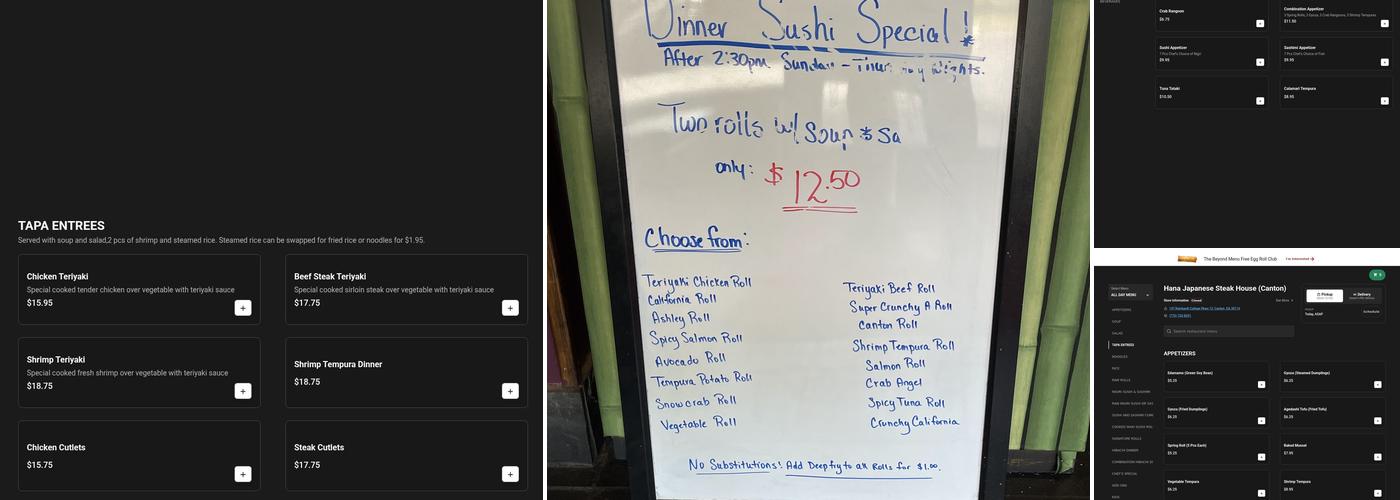 TAPA ENTREES
Served with soup and salad,2 pcs of shrimp and steamed rice. Steamed rice can be swapped for fried rice or noodles for $1.95.
Chicken Teriyaki
Special cooked tender chicken over vegetable with teriyaki sauce
$15.95
Beef Steak Teriyaki
Special cooked sirloin steak over vegetable with teriyaki sauce
$17.75
Shrimp Teriyaki
Special cooked fresh shrimp over vegetable with teriyaki sauce
$18.75
Shrimp Tempura Dinner
$18.75
Chicken Cutlets
$15.75
Steak Cutlets
$17.75
Dinner Sushi Special!
After 2:30pm Sunday - Thursday Nights.
Two rolls w/ Soup & Sa
only: $12.50
Choose from:
Teriyaki Chicken Roll
California Roll
Ashley Roll
Spicy Salmon Roll
Avocado Roll
Tempura Potato Roll
Snowcrab Roll
Vegetable Roll
Teriyaki Beef Roll
Super Crunchy A Roll
Canton Roll
Shrimp Tempura Roll
Salmon Roll
Crab Angel
Spicy Tuna Roll
Crunchy California
No Substitutions! Add Deepfry to all Rolls for $1.00.
BEVERAGES
Crab Rangoon
$6.75
Combination Appetizer
$11.50
Sushi Appetizer
$9.95
Sashimi Appetizer
$9.95
Tuna Tataki
$10.50
Calamari Tempura
$8.95
The Beyond Menu Free Egg Roll Club
I'm Interested
Select Menu
ALL DAY MENU
Hana Japanese Steak House (Canton)
Store Information Closed
See More
Pickup
Delivery
Today, ASAP
Schedule
Search restaurant menu
APPETIZERS
SOUP
SALAD
TAPA ENTREES
NOODLES
RICE
RAW ROLLS
SIGNATURE ROLLS
HIBACHI DINNER
CHEF'S SPECIAL
APPETIZERS
Edamame (Green Soy Bean)
$5.25
Gyoza (Steamed Dumplings)
$6.25
Gyoza (Fried Dumplings)
$6.25
Agedashi Tofu (Fried Tofu)
$6.25
Spring Roll (2 Pcs Each)
$5.25
Baked Mussel
$7.95
Vegetable Tempura
$6.25
Shrimp Tempura
$8.95